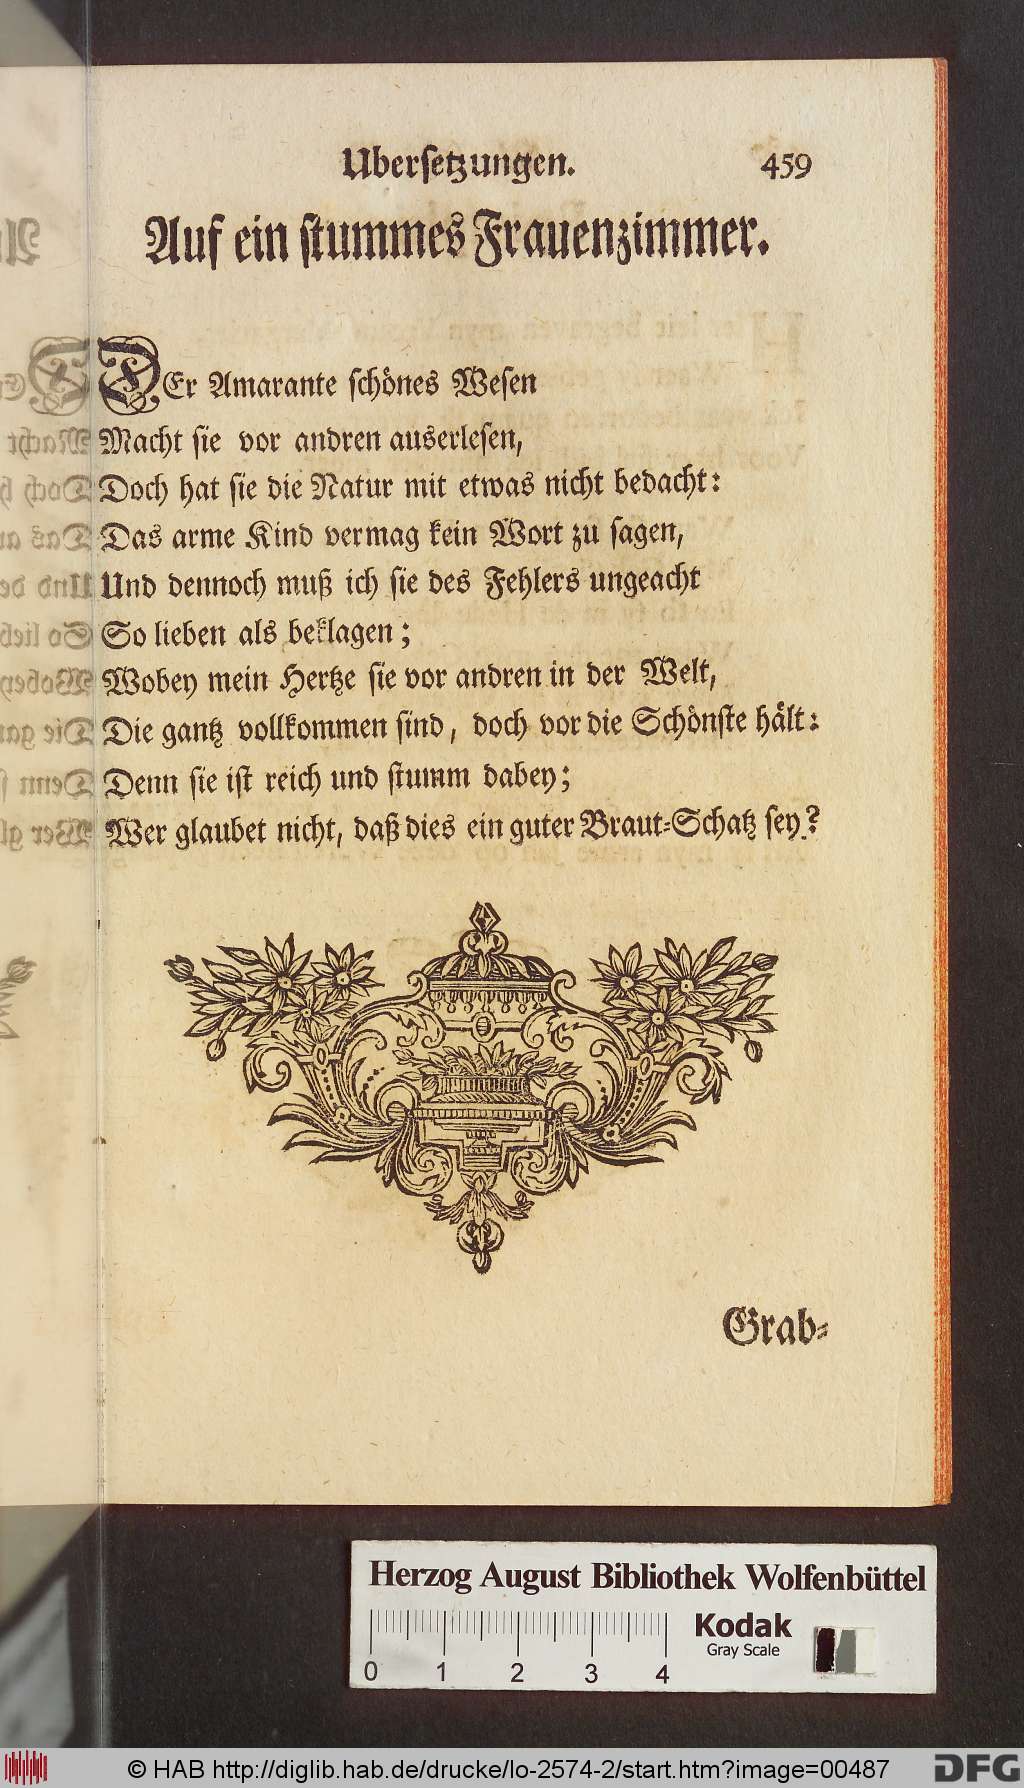 Ubersetzungen. 459
Auf ein stummes Frauenzimmer.
DEr Amarante schönes Wesen
Macht sie vor andren auserlesen,
Doch hat sie die Natur mit etwas nicht bedacht:
Das arme Kind vermag kein Wort zu sagen,
Und dennoch muß ich sie des Fehlers ungeacht
So lieben als beklagen;
Wobey mein Hertze sie vor andren in der Welt,
Die gantz vollkommen sind, doch vor die Schönste hält:
Denn sie ist reich und stumm dabey;
Wer glaubet nicht, daß dies ein guter Braut-Schatz sey?
Grab-
Herzog August Bibliothek Wolfenbüttel
Kodak
Gray Scale
0 1 2 3 4
© HAB http://diglib.hab.de/drucke/lo-2574-2/start.htm?image=00487
DFG